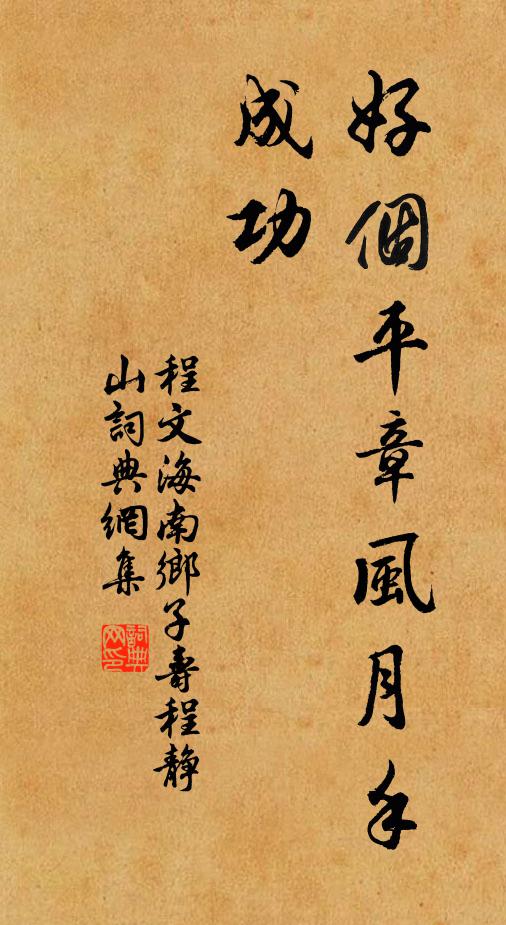 好個平章風月手
成功
程文海南鄉子壽程靜
山詞典網集
詞典
网印